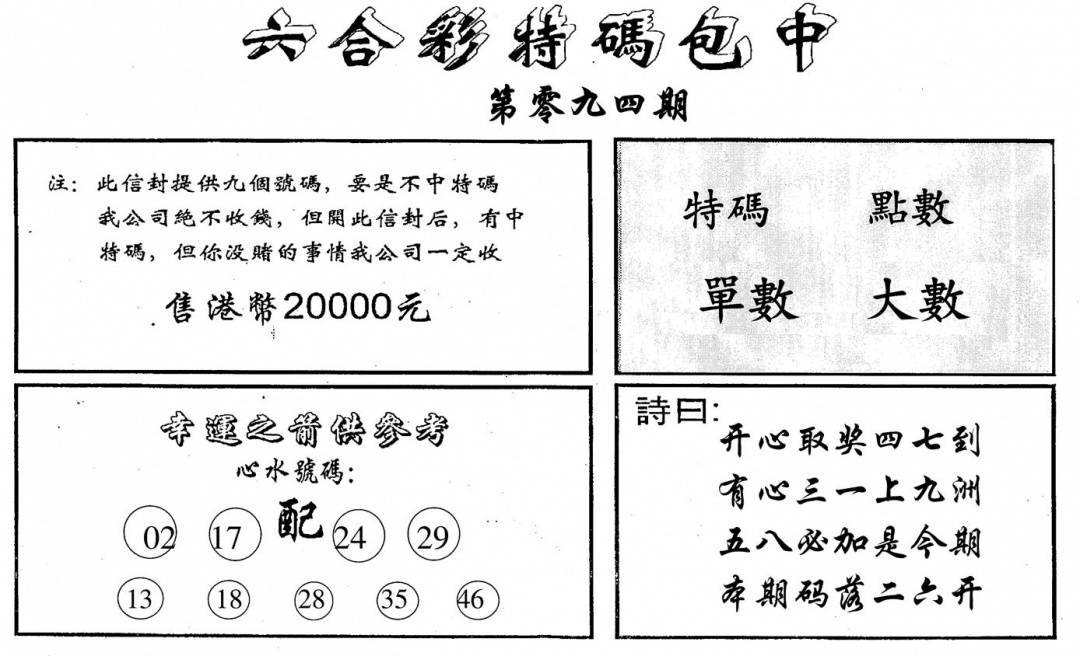 六合彩特碼包中
第零九四期
注：此信封提供九個號碼，要是不中特碼
我公司絕不收錢，但開此信封后，有中
特碼，但你没賭的事情我公司一定收
售港幣20000元
特碼 點數
單數 大數
幸運之箭供參考
心水號碼：
02 17 配 24 29
13 18 28 35 46
詩曰：
开心取奖四七到
有心三一上九洲
五八必加是今期
本期码落二六开